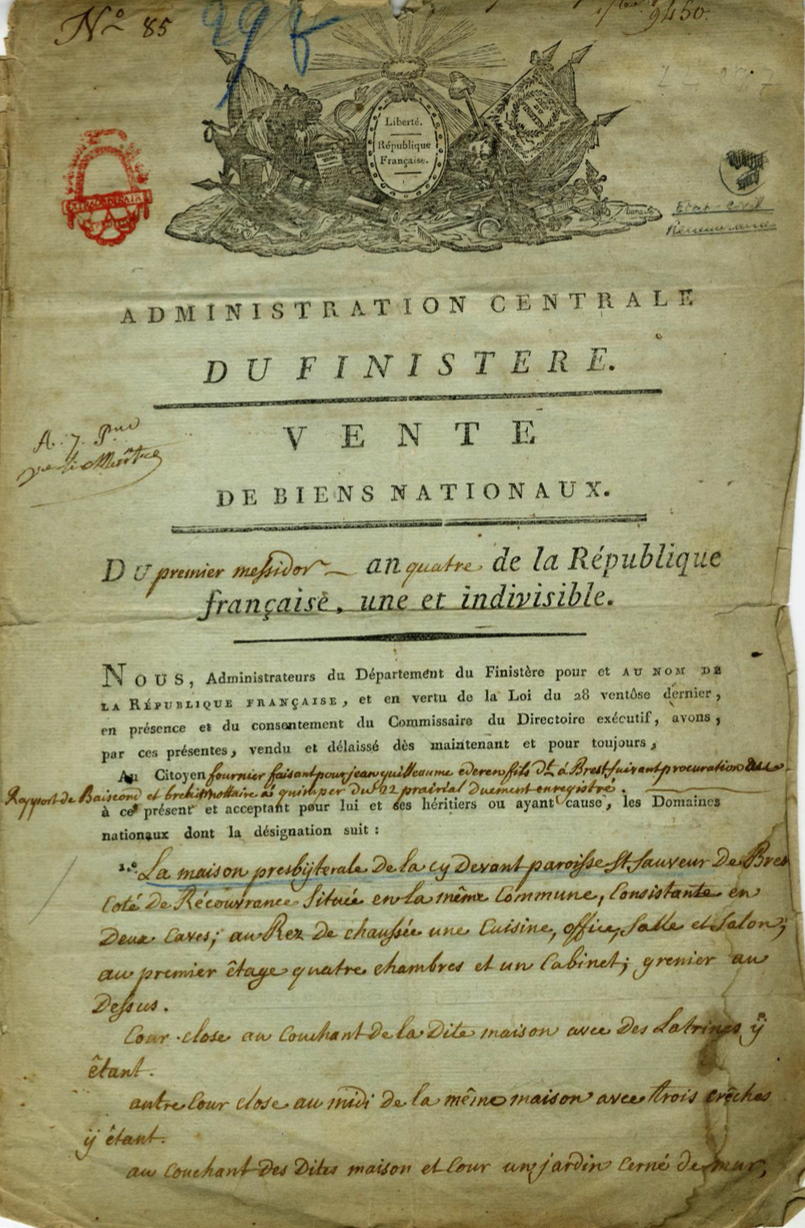 N° 85
9450.
Liberté.
République
Française.
Etat-Civil
Recouvrance
ADMINISTRATION CENTRALE
DU FINISTERE.
VENTE
DE BIENS NATIONAUX.
DU premier messidor an quatre de la République
française, une et indivisible.
NOUS, Administrateurs du Département du Finistère pour et AU NOM DE
LA RÉPUBLIQUE FRANÇAISE, et en vertu de la Loi du 28 ventôse dernier,
en présence et du consentement du Commissaire du Directoire exécutif, avons,
par ces présentes, vendu et délaissé dès maintenant et pour toujours,
Au Citoyen fournier faisant pour jean guilleaume ederen fils dt. à Brest suivant procuration au
Rapport de Baiscond et brehier nottaire à quimper du 22 prairial duement enregistré.
à ce présent et acceptant pour lui et ses héritiers ou ayant cause, les Domaines
nationaux dont la désignation suit :
1.° La maison presbijterale De la cy Devant paroisse St. Sauveur De Brest
Coté De Récouvrance Située en la même Commune, Consistante en
Deux Caves; au Rez De chaussée une Cuisine, office, Salle et Salon;
au premier êtage quatre chambres et un Cabinet; grenier au
Dessus.
Cour close au Couchant de la Dite maison avec Des Latrines ÿ
êtant.
autre Cour close au midi de la même maison avec trois crêches
ÿ êtant.
au couchant Des Dites maison et Cour un jardin cerné de mur,